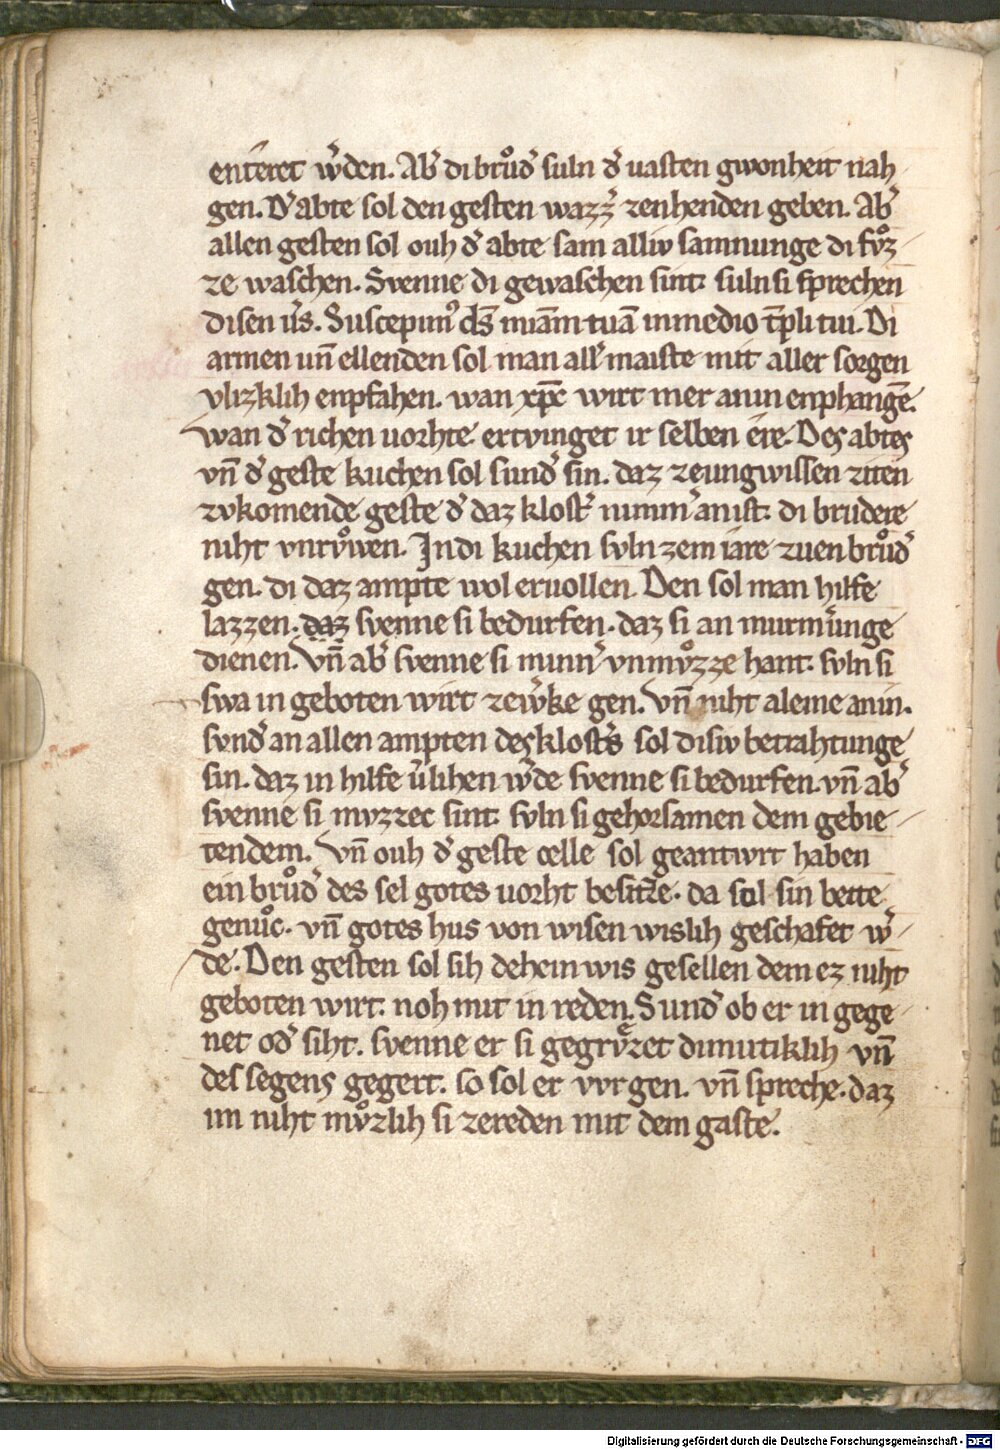 enteret w͛den. Ab͛ di bruͦd͛ suln d͛ uasten gwonheit nah
gen. D͛ abte sol den gesten wazz͛ zenhenden geben. Ab͛
allen gesten sol ouh d͛ abte sam alliv samnunge di fvͦz-
ze waschen. Svenne di gewaschen sint. suln si sprechen
disen u͛s. Suscepimꝰ ds̄ miam̄ tuā inmedio tp̄li tui. Di
armen un̄ ellenden sol man all͛maiste mit aller sorgen
vlizklih enpfahen. wan xp̄c wirt mer an in enphangē.
wan d͛ richen uorhte ertvinget ir selben ere. Des abtes
vn̄ d͛ geste kuchen sol sund͛ sin. daz zeungwissen ziten
zvkomende geste d͛ daz klost͛ nimm͛ an ist. di brudere
niht vnrvͦwen. In di kuchen svln zem iare zuen bruͦd͛
gen. di daz ampte wol eruollen. Den sol man hilfe
lazzen. daz svenne si bedurfen. daz si an murm͛unge
dienen. Vn̄ ab͛ svenne si minn͛ vnmvͦzze hant. svln si
swa in geboten wirt zew͛ke gen. Vn̄ niht aleine an in.
svnd͛ an allen ampten des klost͛s sol disiv betrahtunge
sin. daz in hilfe u͛lihen w͛de svenne si bedurfen. vn̄ ab͛
svenne si mvzzec sint. svln si gehorsamen dem gebie-
tendem. Vn̄ ouh d͛ geste celle sol geantwrt haben
ein bruͦd͛ des sel gotes uorht besitze. da sol sin bette
genuͦc. vn̄ gotes hus von wisen wislih geschafet w͛-
de. Den gesten sol sih dehein wis gesellen dem ez niht
geboten wirt. noh mit in reden. Sund͛ ob er in gege-
net od͛ siht. svenne er si gegrvͤzet dimutiklih vn̄
des segens gegert. so sol er vvr gen. vn̄ spreche. daz
im niht mvͦzlih si zereden mit dem gaste.
Digitalisierung gefördert durch die Deutsche Forschungsgemeinschaft - DFG